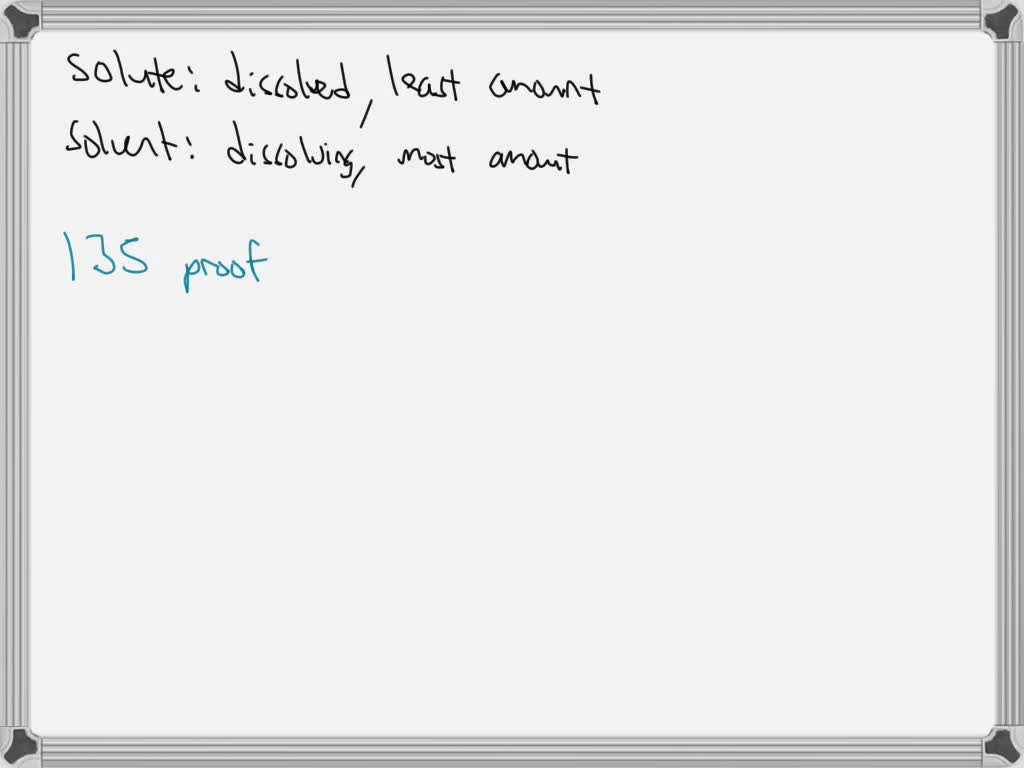 Solute: dissolved, least amount
Solvent: dissolving, most amount
135 proof